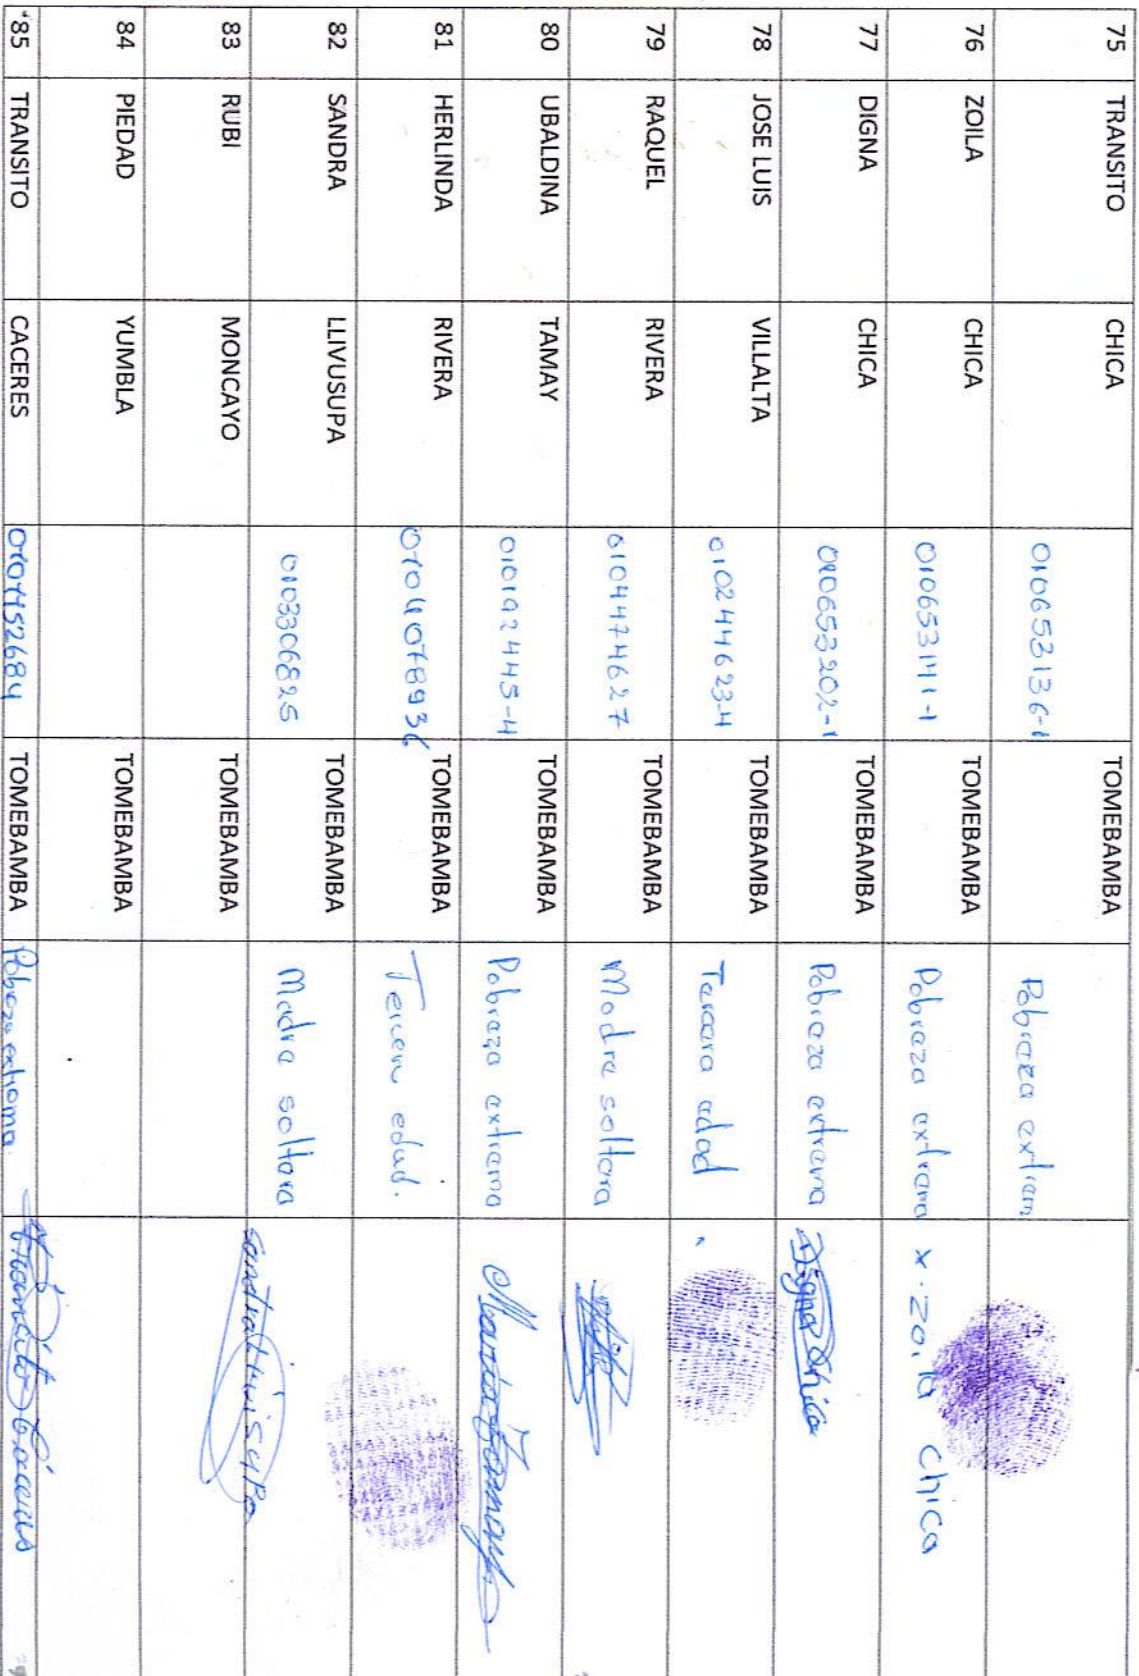 75 TRANSITO CHICA 010653136-1 TOMEBAMBA Pobreza extrem
76 ZOILA CHICA 010653141-1 TOMEBAMBA Pobreza extrema x. Zoila Chica
77 DIGNA CHICA 010653202-1 TOMEBAMBA Pobreza extrema Digna Chica
78 JOSE LUIS VILLALTA 010244623-4 TOMEBAMBA Tercera edad
79 RAQUEL RIVERA 0104474627 TOMEBAMBA Madre soltera
80 UBALDINA TAMAY 010192445-4 TOMEBAMBA Pobreza extrema
81 HERLINDA RIVERA 0104078936 TOMEBAMBA Tercera edad.
82 SANDRA LLIVUSUPA 0103306825 TOMEBAMBA Madre soltera
83 RUBI MONCAYO TOMEBAMBA
84 PIEDAD YUMBLA TOMEBAMBA
85 TRANSITO CACERES TOMEBAMBA Pobreza extrema Transito Caceres